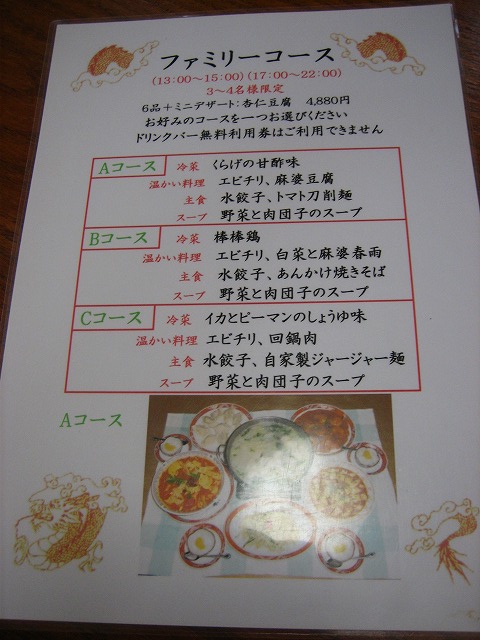 ファミリーコース
(13:00〜15:00)(17:00〜22:00)
3〜4名様限定
6品＋ミニデザート:杏仁豆腐 4,880円
お好みのコースを一つお選びください
ドリンクバー無料利用券はご利用できません
Aコース 冷菜 くらげの甘酢味
温かい料理 エビチリ、麻婆豆腐
主食 水餃子、トマト刀削麺
スープ 野菜と肉団子のスープ
Bコース 冷菜 棒棒鶏
温かい料理 エビチリ、白菜と麻婆春雨
主食 水餃子、あんかけ焼きそば
スープ 野菜と肉団子のスープ
Cコース 冷菜 イカとピーマンのしょうゆ味
温かい料理 エビチリ、回鍋肉
主食 水餃子、自家製ジャージャー麺
スープ 野菜と肉団子のスープ
Aコース